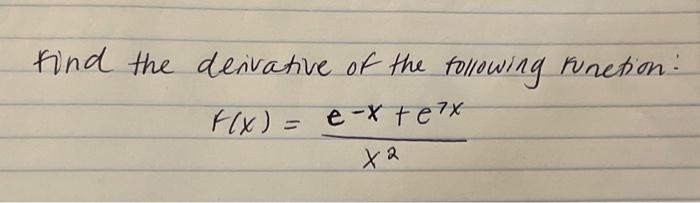 Find the derivative of the following function:
F(x) = e^-x + e^7x
x^2